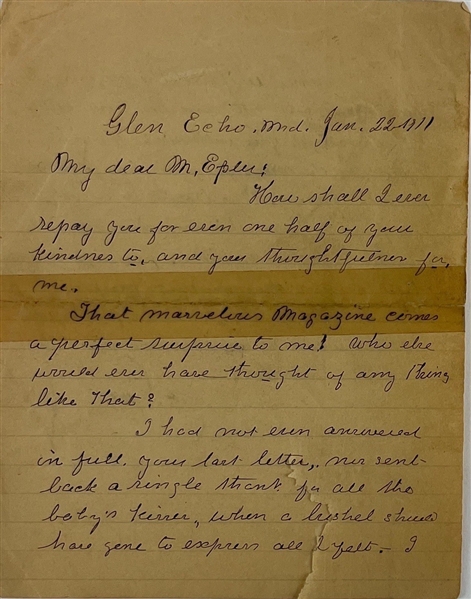 Glen Echo, Md. Jan. 22-1911
My dear Mr. Epler:
How shall I ever
repay you for even one half of your
kindness to, and your thoughtfulness for,
me.
That marvelous Magazine comes
a perfect surprise to me! Who else
would ever have thought of any thing
like that?
I had not even answered
in full, your last letter, nor sent
back a single thank for all the
baby's kisses, when a bushel should
have gone to express all I felt. - I